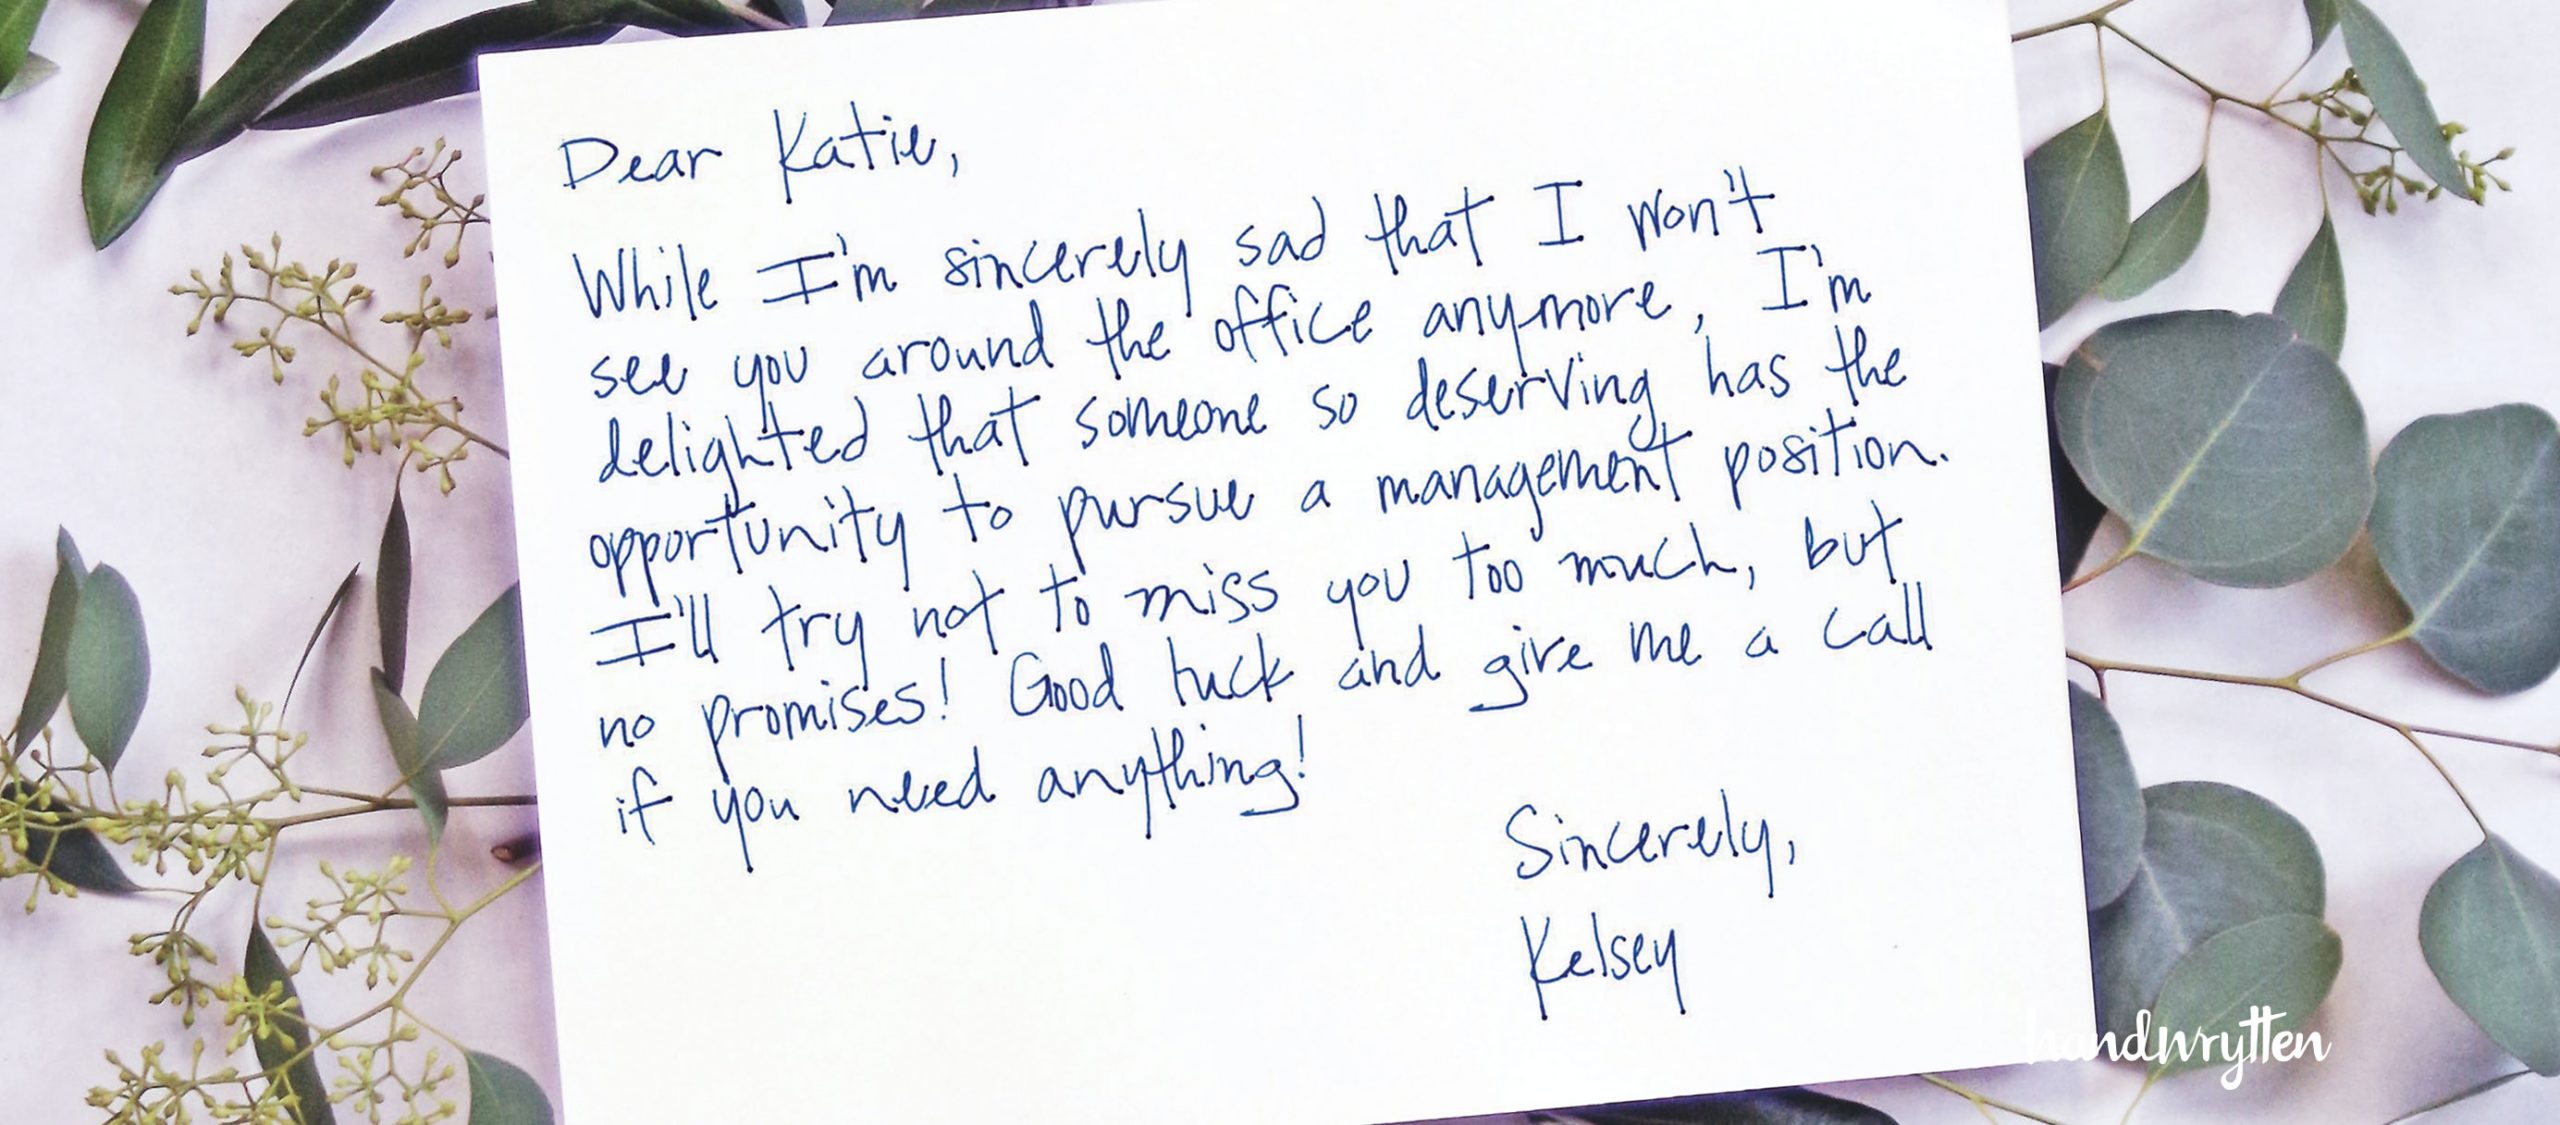 Dear Katie,
While I'm sincerely sad that I won't
see you around the office anymore, I'm
delighted that someone so deserving has the
opportunity to pursue a management position.
I'll try not to miss you too much, but
no promises! Good luck and give me a call
if you need anything!
Sincerely,
Kelsey
handwrytten